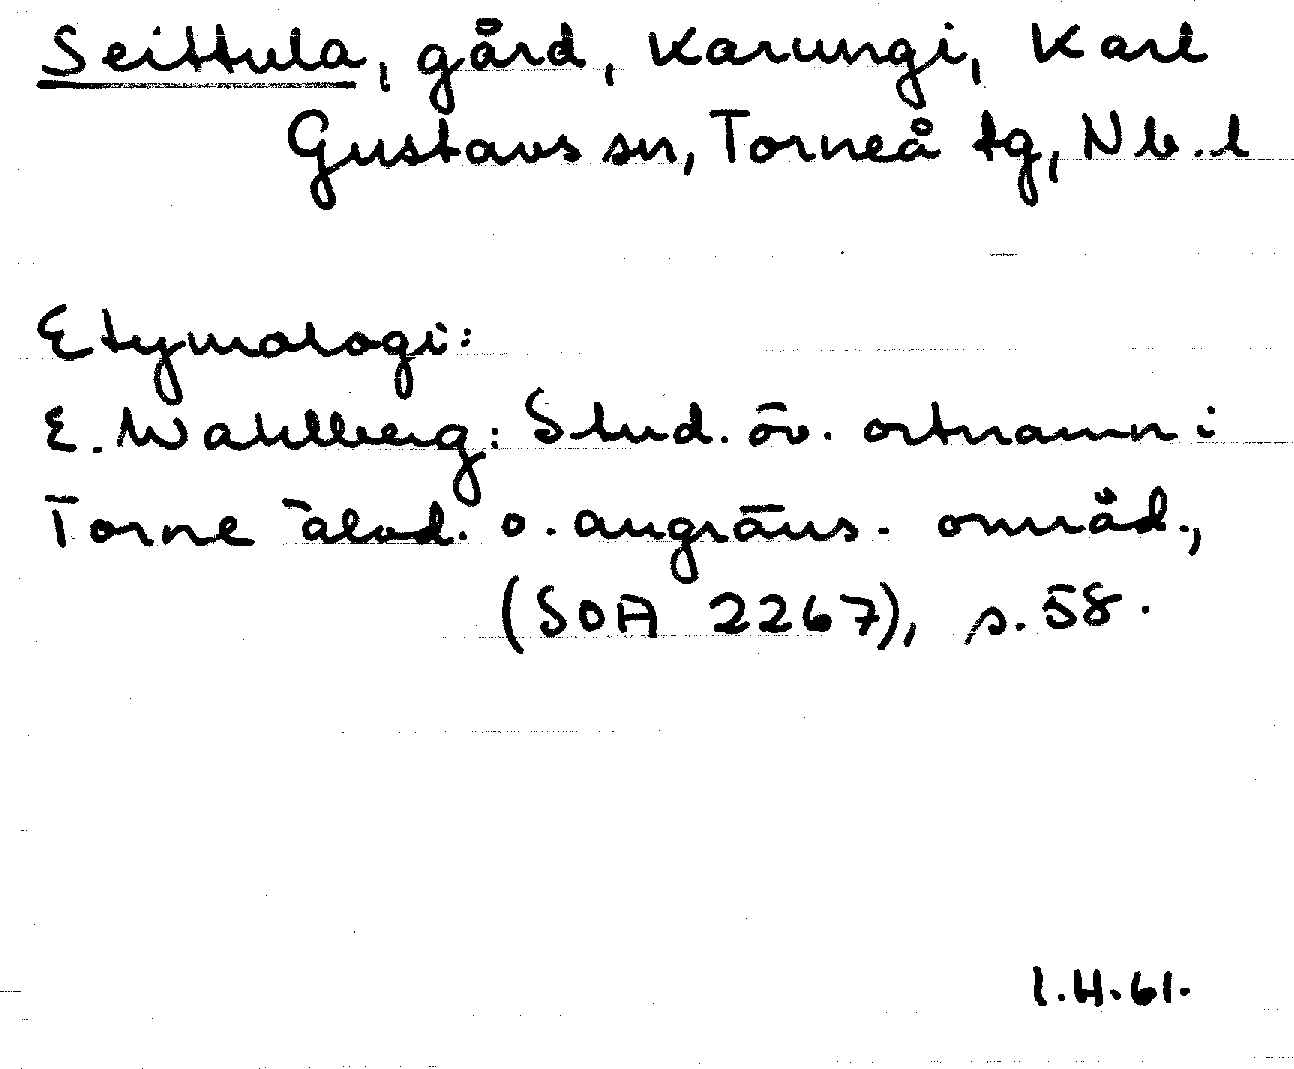 Seittula, gård, Karungi, Karl
Gustavs sn, Torneå tg, Nb. l
Etymologi:
E. Wahlberg: Stud. öv. ortnamn i
Torne älvd. o. angräns. områd.,
(SOA 2267), s. 58.
1.4.61.